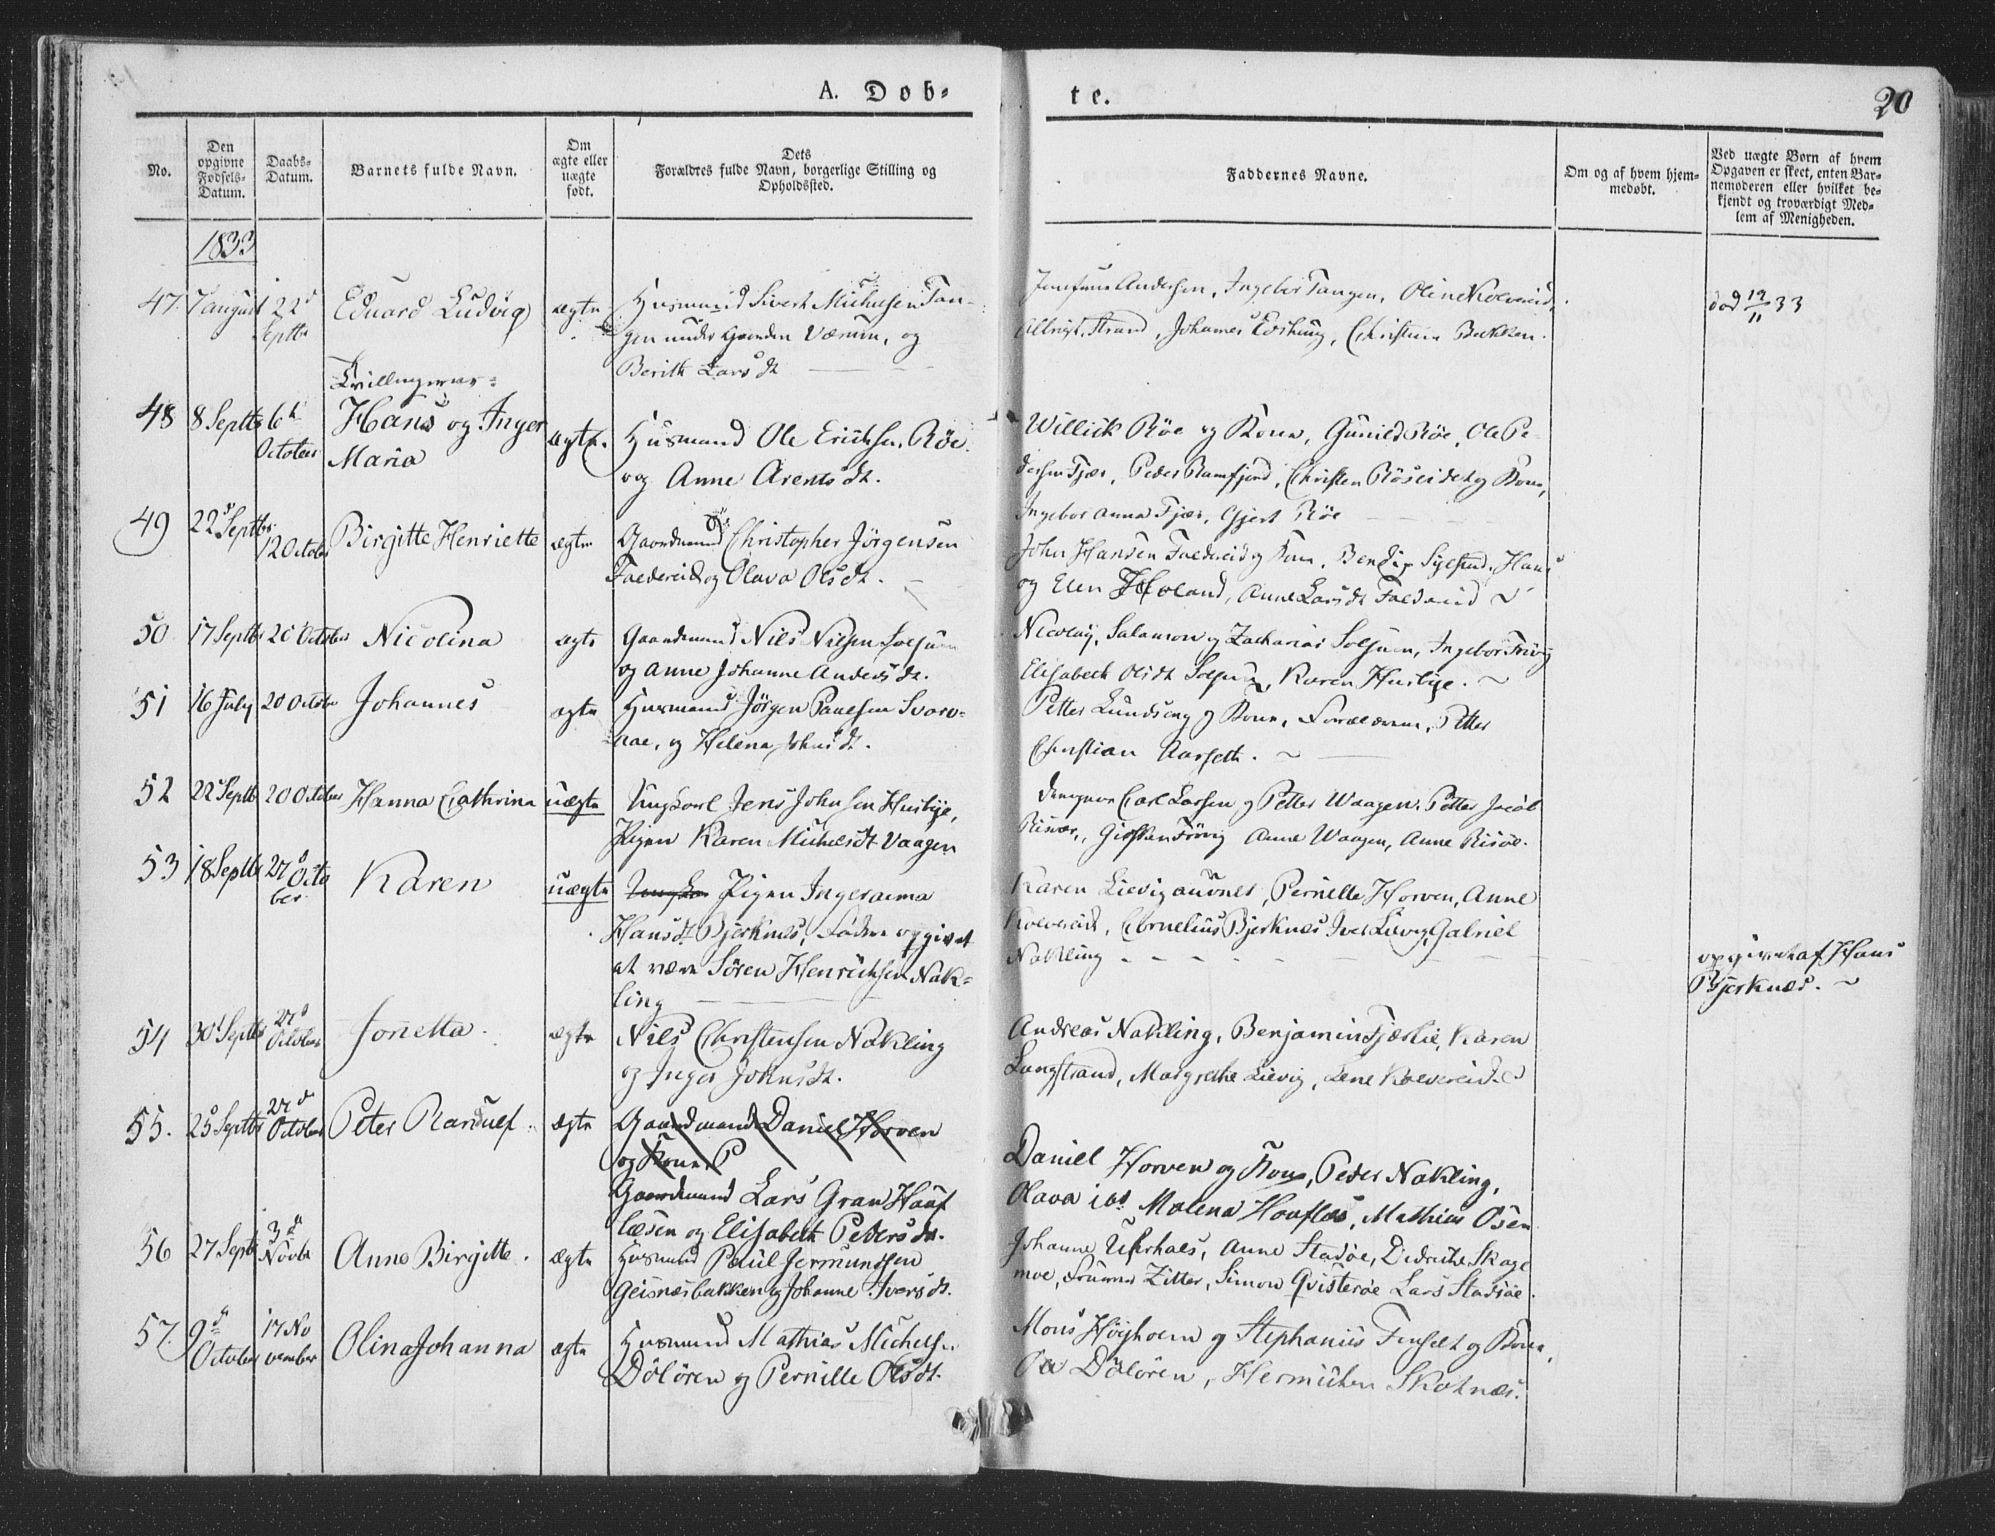 A. Dob-
te.
20
No.
Den opgivne Fødsels-Datum.
Daabs-Datum.
Barnets fulde Navn.
Om ægte eller uægte født.
Dets Forældres fulde Navn, borgerlige Stilling og Opholdssted.
Faddernes Navne.
Om og af hvem hjem-medøbt.
Ved uægte Børn af hvem Opgaven er skeet, enten Bar-nemoderen eller hvilket be-kjendt og troværdigt Med-lem af Menigheden.
1833
47. 7 august 22d Septbr Eduard Ludvig ægte Husmand Sivert Michelsen Tan-
gen under Gaarden Værum, og
Berith Larsdt
Andersen, Ingebor Tangen, Oline Kolvereid,
Albrigt Strand, Johannes, Christina Bakken.
død 19/11 33
Tvillingerne:
48 8 Septbr 6te October Hans og Inger
Maria
ægte. Husmand Ole Erichsen Röe
og Anne Arentsdt.
Willick Röe og Kone, Gunild Röe, Ole Pe-
dersen Fjær, Peder Ramfjord, Christen Röseidet og Kone,
Ingebor Anna Fjær, Gjert Röe
49 22d Septbr 12 October Birgitte Henriette ægte Gaardmand Christopher Jörgensen
Foldereid og Olava Olsdt.
John Hansen Foldereid og Kone, Bendix, Hans
og Elen Höland, Anne Larsdt Foldereid
50 17 Septbr 20 October Nicolina ægte Gaardmand Nils Nilsen Solsjuen
og Anne Johanne Andersdt.
Nicolay, Salamon og Zacharias Solsjuen, Ingebor
Elisabeth Olsdt, Karen Husbye.
51 16 July 20 October Johannes ægte Husmand Jörgen Paulsen Svarv-
aae, og Helena Johnsdt.
Petter Lundseng og Kone, Forældrene, Petter
Christian Aarseth.
52 22 Septb 20 October Hanna Cathrina uægte Ungkarl Jens Johnsen Husbye,
Pigen Karen Michelsdt Vaagen
Carl Larsen og Petter Waagen, Petter Jacob
Risvær, Anne Waagen, Anne Risöe.
53 18 Septbr 27d October Karen uægte Pigen Ingeranna
Hansdt. Bjerknes, Faderen opgivet
at være Sören Henrichsen Nak-
ling
Karen, Pernille Horven, Anne
Kolvereid, Cornelius Bjerknes, Iver Lievig, Gabriel
Nakling
opgivet af Hans
Bjerknes.
54 30 Septbr 27d October Jonetta. ægte Nils Christensen Nakling
og Inger Johnsdt.
Andreas Nakling, Benjamin Fjærlie, Karen
Langstrand, Margrethe Lievig, Lene Kolvereid.
55. 25 Septbr 27d October Peter Randulf. ægte Gaardmand Daniel Horven
og Kone P
Gaardmand Lars Gran Hauf
læsen og Elisabeth Pedersdt.
Daniel Horven og Kone, Peder Nakling,
Olava ibd Malena Houfles, Mathias Osen
56 27 Septb 3d Novbr Anne Birgitte. ægte Husmand Paul Jermundsen
Geisnesbakken og Johanne Iversdt.
Johanne, Anne Stadöe, Didriche Skage
moe, Zitter, Simon Qvisteröe Lars Stadsöe.
57. 9d October 17 November Olina Johanna ægte Husmand Mathias Michels.
Dölören og Pernille Olsdt.
Mons Höyholm og Stephanius og Kone,
Dölören, Skotnæs.